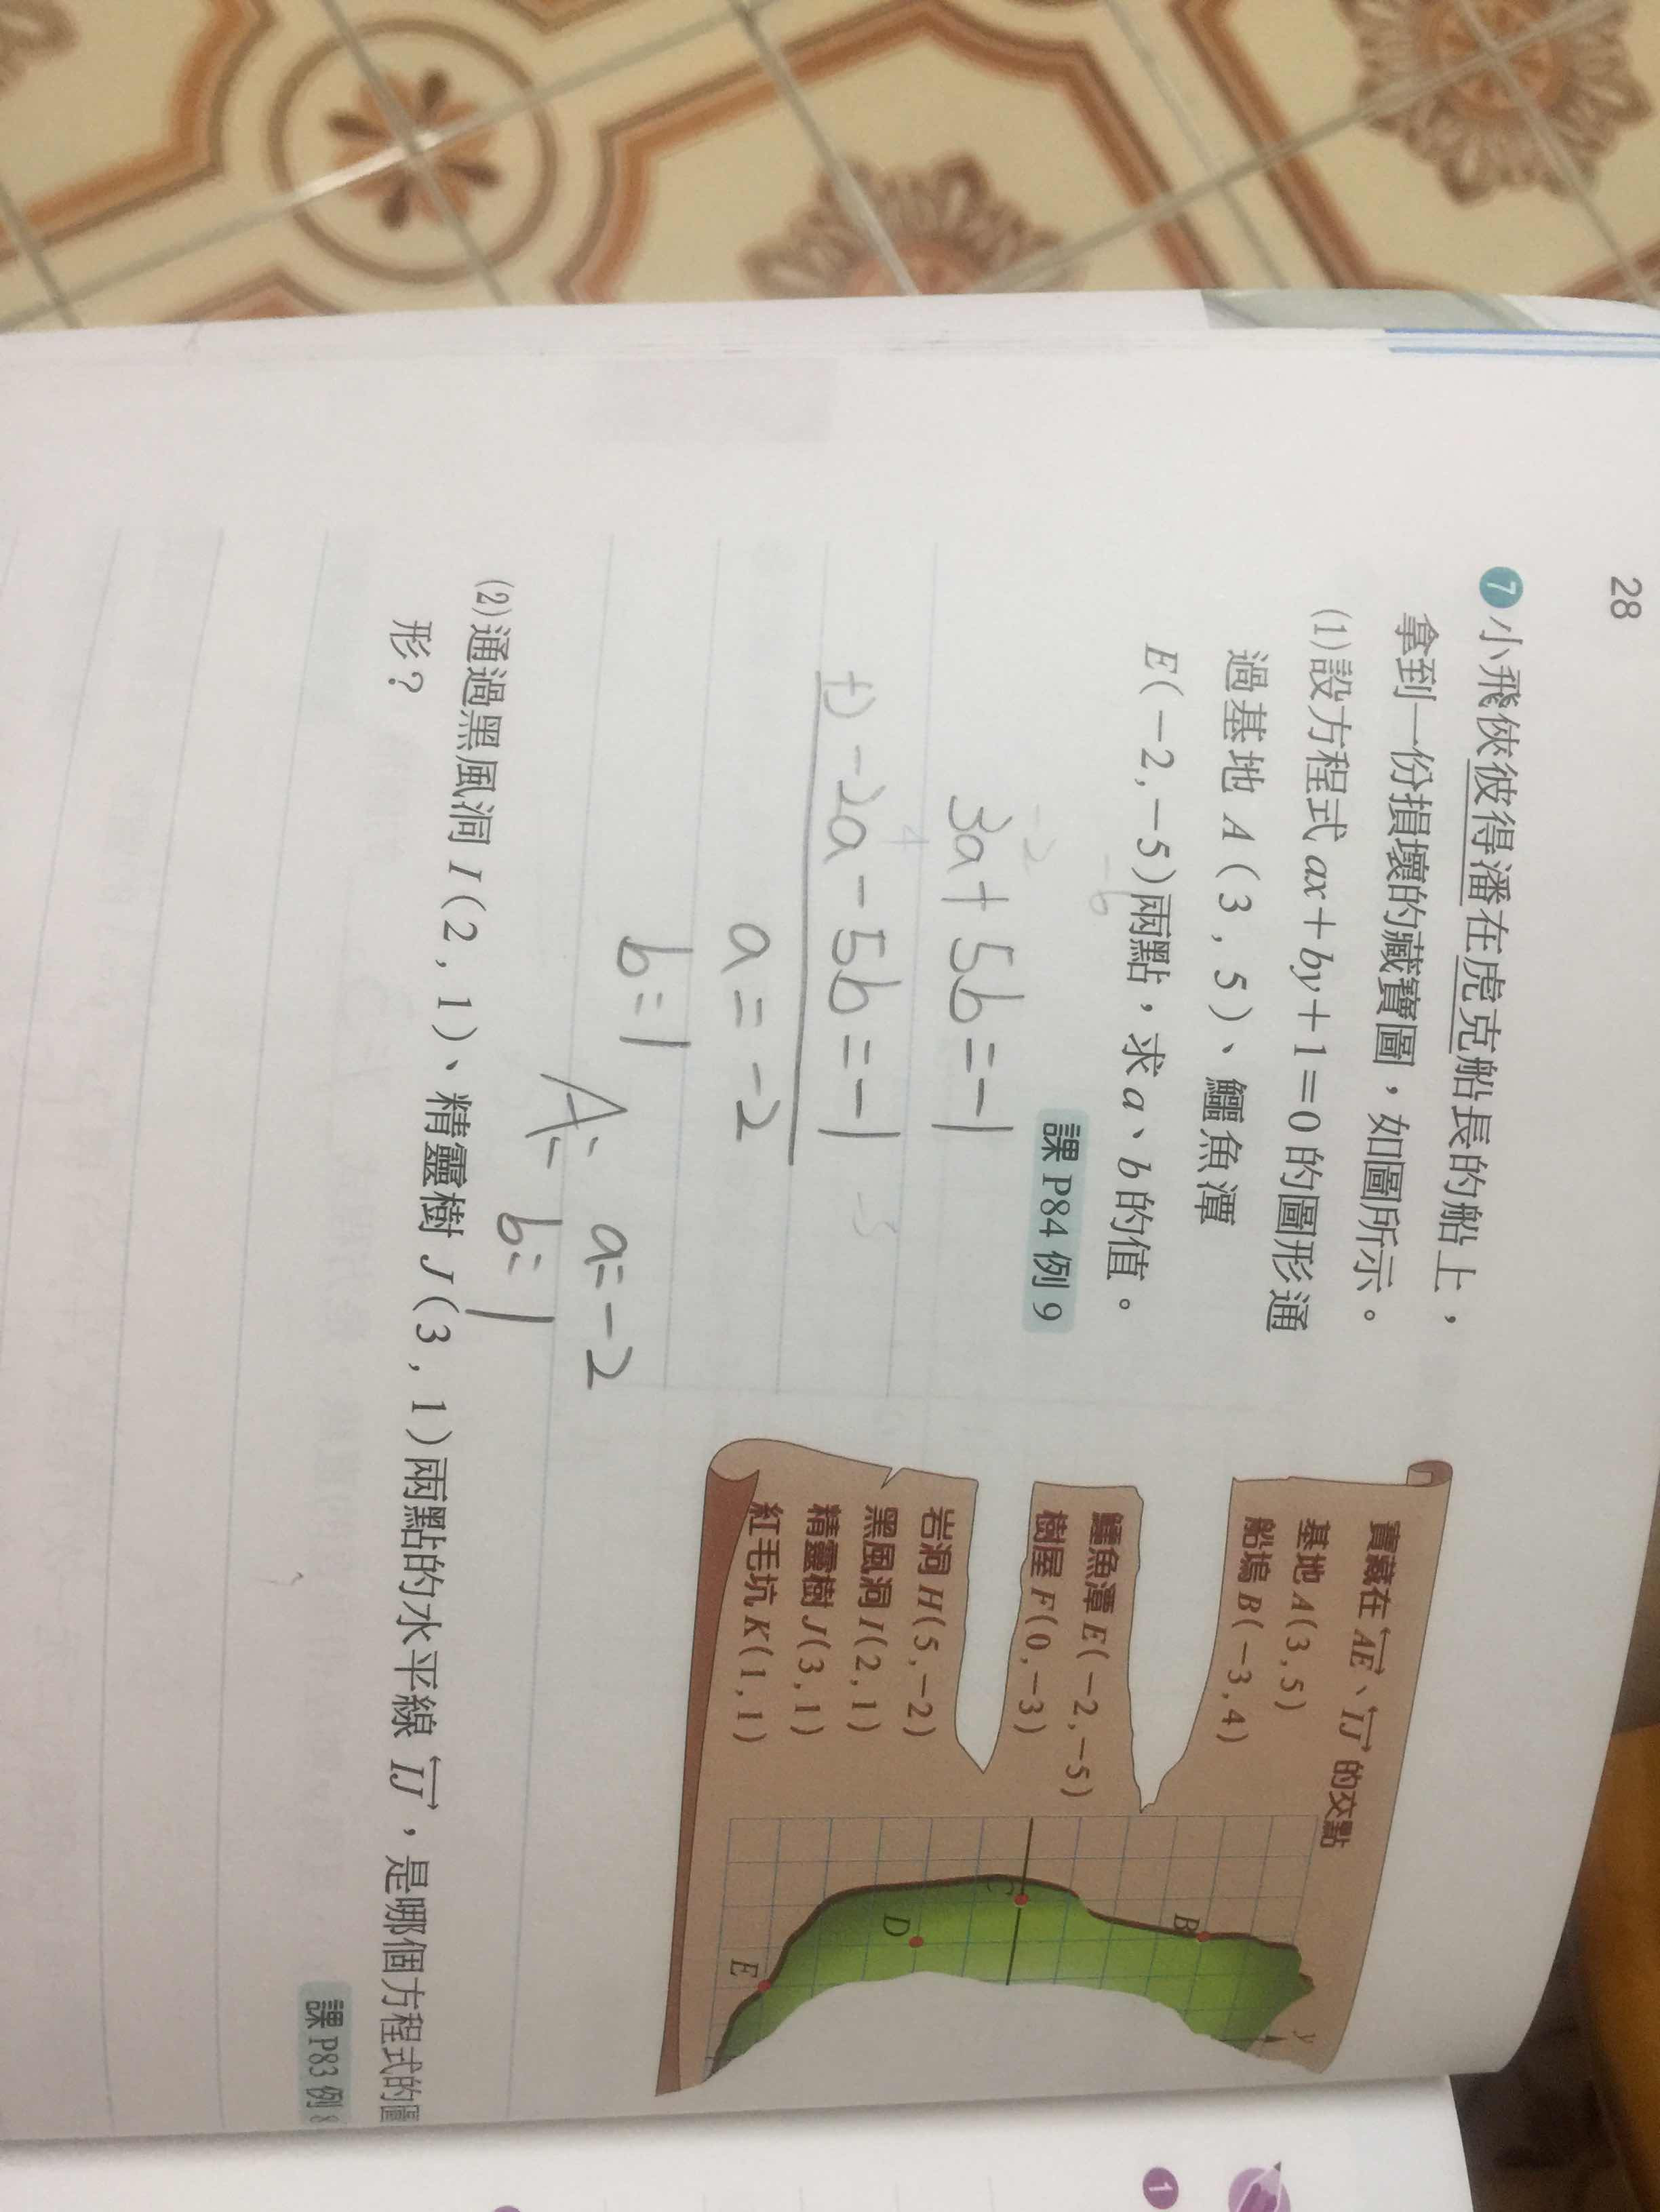 28
7 小飛俠彼得潘在虎克船長的船上，
拿到一份損壞的藏寶圖，如圖所示。
(1)設方程式 ax＋by＋1＝0 的圖形通
過基地 A（3 , 5）、鱷魚潭
E(－2,－5)兩點，求 a、b 的值。
課 P84 例 9
3a+5b=-1
+) -2a-5b=-1
a=-2
b=1
A: a=-2
b=1
寶藏在 AE、IJ 的交點
基地 A(3,5)
船塢 B(－3,4)
鱷魚潭 E(－2,－5)
樹屋 F(0,－3)
岩洞 H(5,－2)
黑風洞 I(2,1)
精靈樹 J(3,1)
紅毛坑 K(1,1)
y
B
C
D
E
(2)通過黑風洞 I（2 , 1）、精靈樹 J（3 , 1）兩點的水平線 IJ，是哪個方程式的圖
形？
課 P83 例 8
1